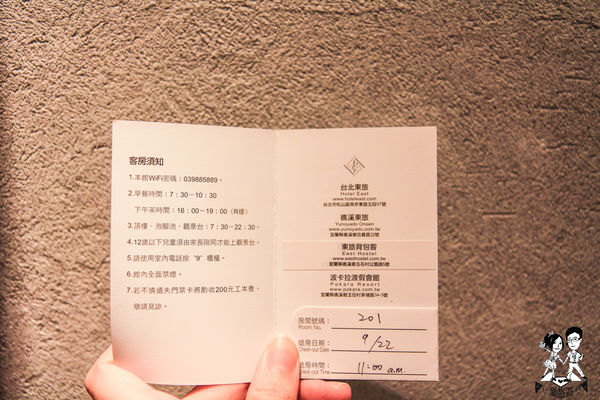 客房須知
1.本館WiFi密碼：039885889。
2.早餐時間：7：30－10：30
下午茶時間：16：00－19：00（R樓）
3.頂樓、泡腳池、觀景台：7：30－22：30。
4.12歲以下兒童須由家長陪同才能上觀景台。
5.請使用室內電話按“9”櫃檯。
6.館內全面禁煙。
7.若不慎遺失門禁卡將酌收200元工本費，
敬請見諒。
台北東旅
Hotel East
www.hoteleast.com
台北市松山區南京東路五段97號
礁溪東旅
Yunoyado Onsen
www.yunoyado.com.tw
宜蘭縣礁溪鄉德陽路32號
東旅背包客
East Hostel
www.easthostel.com.tw
宜蘭縣礁溪鄉玉石村公園路5號
波卡拉渡假會館
Pokara Resort
www.pokara.com.tw
房間號碼：
Room No.
201
退房日期：
Check-out Date
9/22
退房時間：
Check-out Time
11:00 a.m.